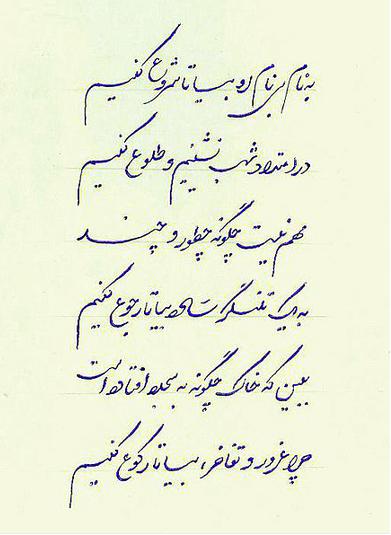 به نام بی نام او بیا تا شروع کنیم
در امتداد شب نشینیم و طلوع کنیم
مهم نیست چگونه چطور و چند
به یک تلنگر ساده بیا تا رجوع کنیم
ببین که خاک چگونه به سجده افتاده است
چرا غرور و تفاخر، بیا تا رکوع کنیم